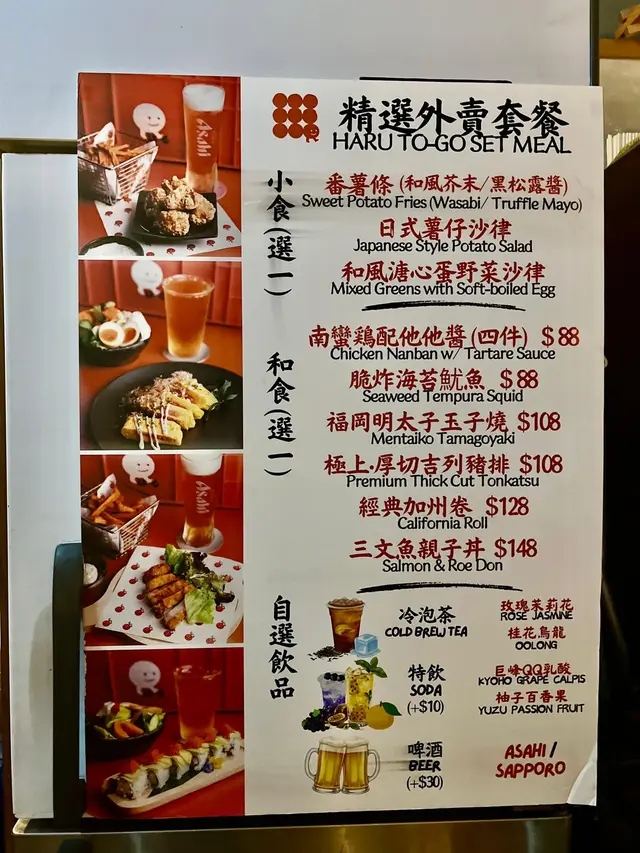 精選外賣套餐
HARU TO-GO SET MEAL
小食(選一)
番薯條 (和風芥末/黑松露醬)
Sweet Potato Fries (Wasabi/ Truffle Mayo)
日式薯仔沙律
Japanese Style Potato Salad
和風溏心蛋野菜沙律
Mixed Greens with Soft-boiled Egg
和食(選一)
南蠻鶏配他他醬 (四件) $88
Chicken Nanban w/ Tartare Sauce
脆炸海苔魷魚 $88
Seaweed Tempura Squid
福岡明太子玉子燒 $108
Mentaiko Tamagoyaki
極上·厚切吉列豬排 $108
Premium Thick Cut Tonkatsu
經典加州卷 $128
California Roll
三文魚親子丼 $148
Salmon & Roe Don
自選飲品
冷泡茶
COLD BREW TEA
玫瑰茉莉花
ROSE JASMINE
桂花烏龍
OOLONG
特飲
SODA
(+$10)
巨峰QQ乳酸
KYOHO GRAPE CALPIS
柚子百香果
YUZU PASSION FRUIT
啤酒
BEER
(+$30)
ASAHI /
SAPPORO
Asahi
Asahi